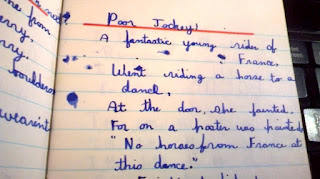 Poor Jockey!
A fantastic young rider of
France,
Went riding a horse to a
dance,
At the door, she fainted,
For on a poster was painted
"No horses from France at
this dance."
from